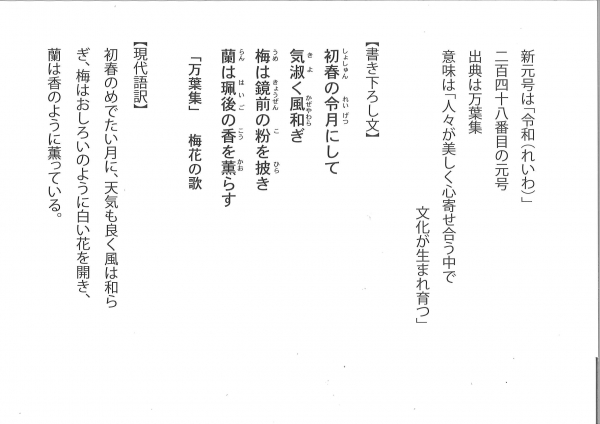 新元号は「令和（れいわ）」
二百四十八番目の元号
出典は万葉集
意味は「人々が美しく心寄せ合う中で
文化が生まれ育つ」
【書き下ろし文】
初春の令月にして
しょしゅん れいげつ
気淑く風和ぎ
きよ かぜやわら
梅は鏡前の粉を披き
うめ きょうぜん こ ひら
蘭は珮後の香を薫らす
らん はいご こう かお
「万葉集」 梅花の歌
【現代語訳】
初春のめでたい月に、天気も良く風は和ら
ぎ、梅はおしろいのように白い花を開き、
蘭は香のように薫っている。